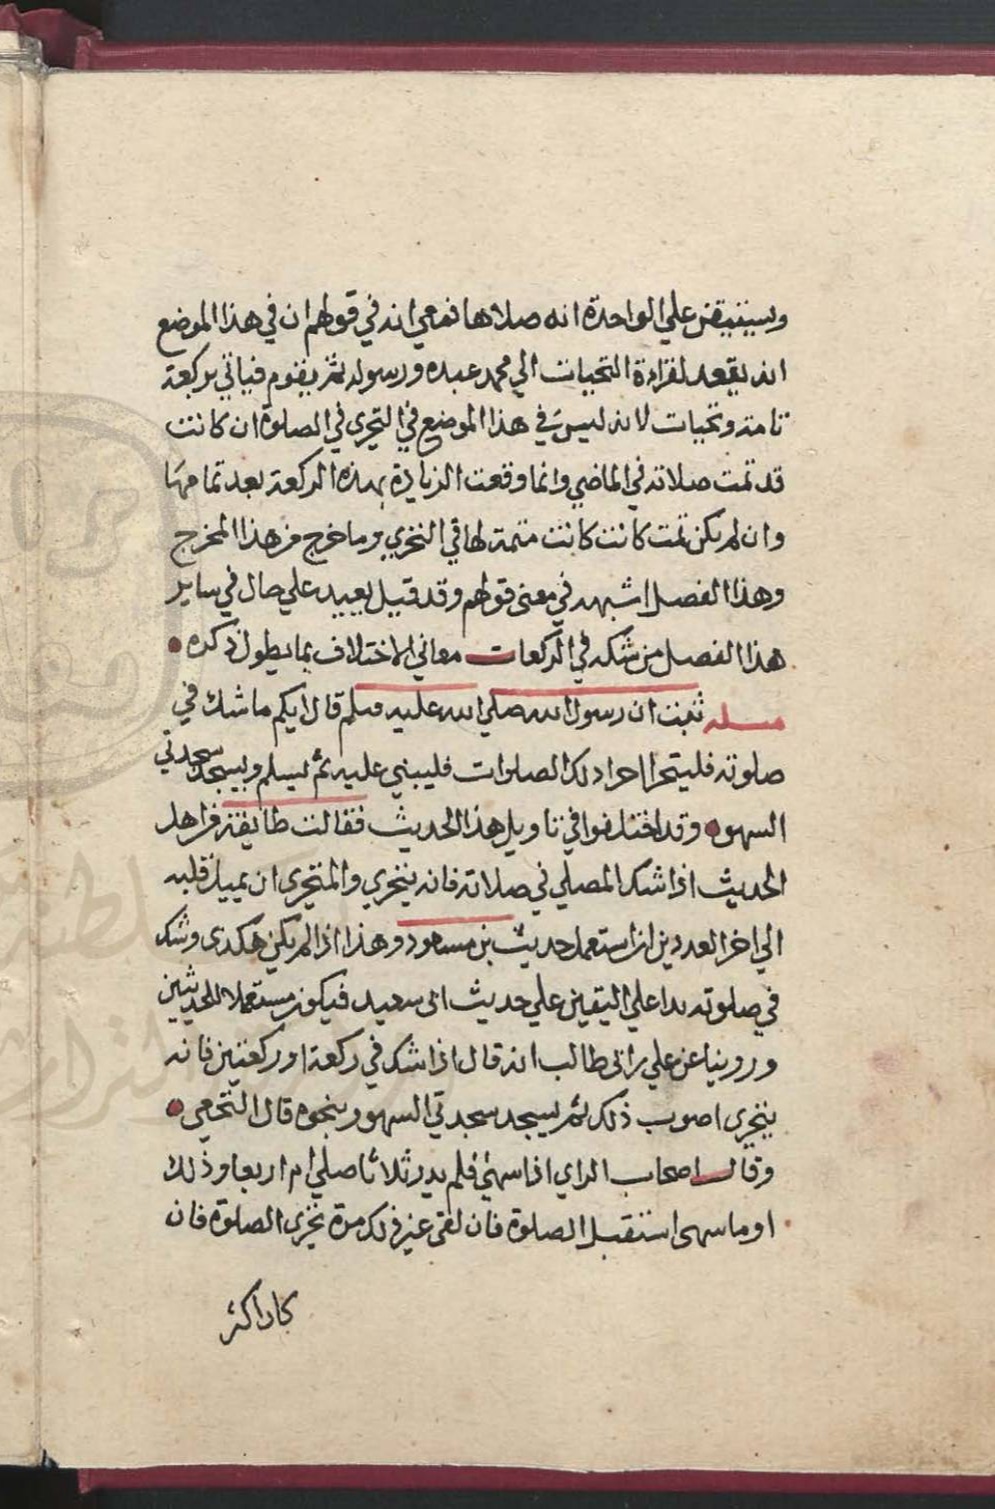 وسينتقض علي الواحدة انه صلاها فمعي انه في قولهم ان في هذا الموضع
انه يقعد لقراءة التحيات الي محمد عبده ورسوله ثم يقوم فياتي بركعة
تامة وتحيات لانه ليس في هذا الموضع في التحري في الصلوة ان كانت
قد تمت صلاته في الماضي وانما وقعت الزيادة بهذه الركعة بعد تمامها
وان لم يكن تمت كانت كانت متمة لها في التحري وما خرج من هذا المخرج
وهذا الفصل اشبهه في معنى قولهم وقد قيل يعيد علي حال في ساير
هذا الفصل من شكه في الركعات معاني الاختلاف بما يطول ذكره
مسله ثبت ان رسول الله صلي الله عليه وسلم قال ايكم ما شك في
صلوته فليتحرا احرا ذلك الصلوات فليبني عليه ثم ليسلم ويسجد سجدتي
السهو وقد اختلفوا في تاويل هذا الحديث فقالت طايفة من اهل
الحديث اذا شك المصلي في صلاته فانه يتحري والمتحري ان يميل قلبه
الي احر العددين اذا ستعمل حديث بن مسعود وهذا اذا لم يكن هكذى وشك
في صلوته بدا علي اليقين علي حديث ابى سعيد فيكون مستعملا للحديثين
وروينا عن علي بن ابى طالب انه قال اذا شك في ركعة او ركعتين فانه
يتحرى اصوب ذلك ثم يسجد سجدتي السهو وبنحوه قال النخعي
وقال اصحاب الراي اذا سهي فلم يدر ثلاثا صلي ام اربعا وذلك
او ما سهى استقبل الصلوة فان لقي غير ذلك مرة تحرى الصلوة فان
كان اكثر